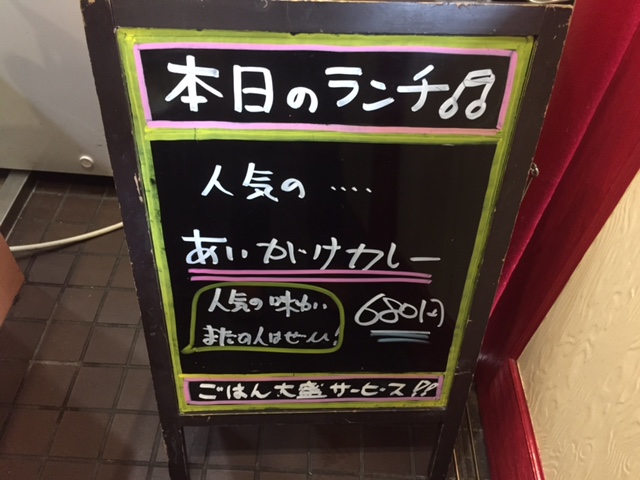 本日のランチ♫
人気の ‥‥
あいがけカレー
人気の味わい
まだの人はぜひ!
680円
ごはん大盛サービス!!